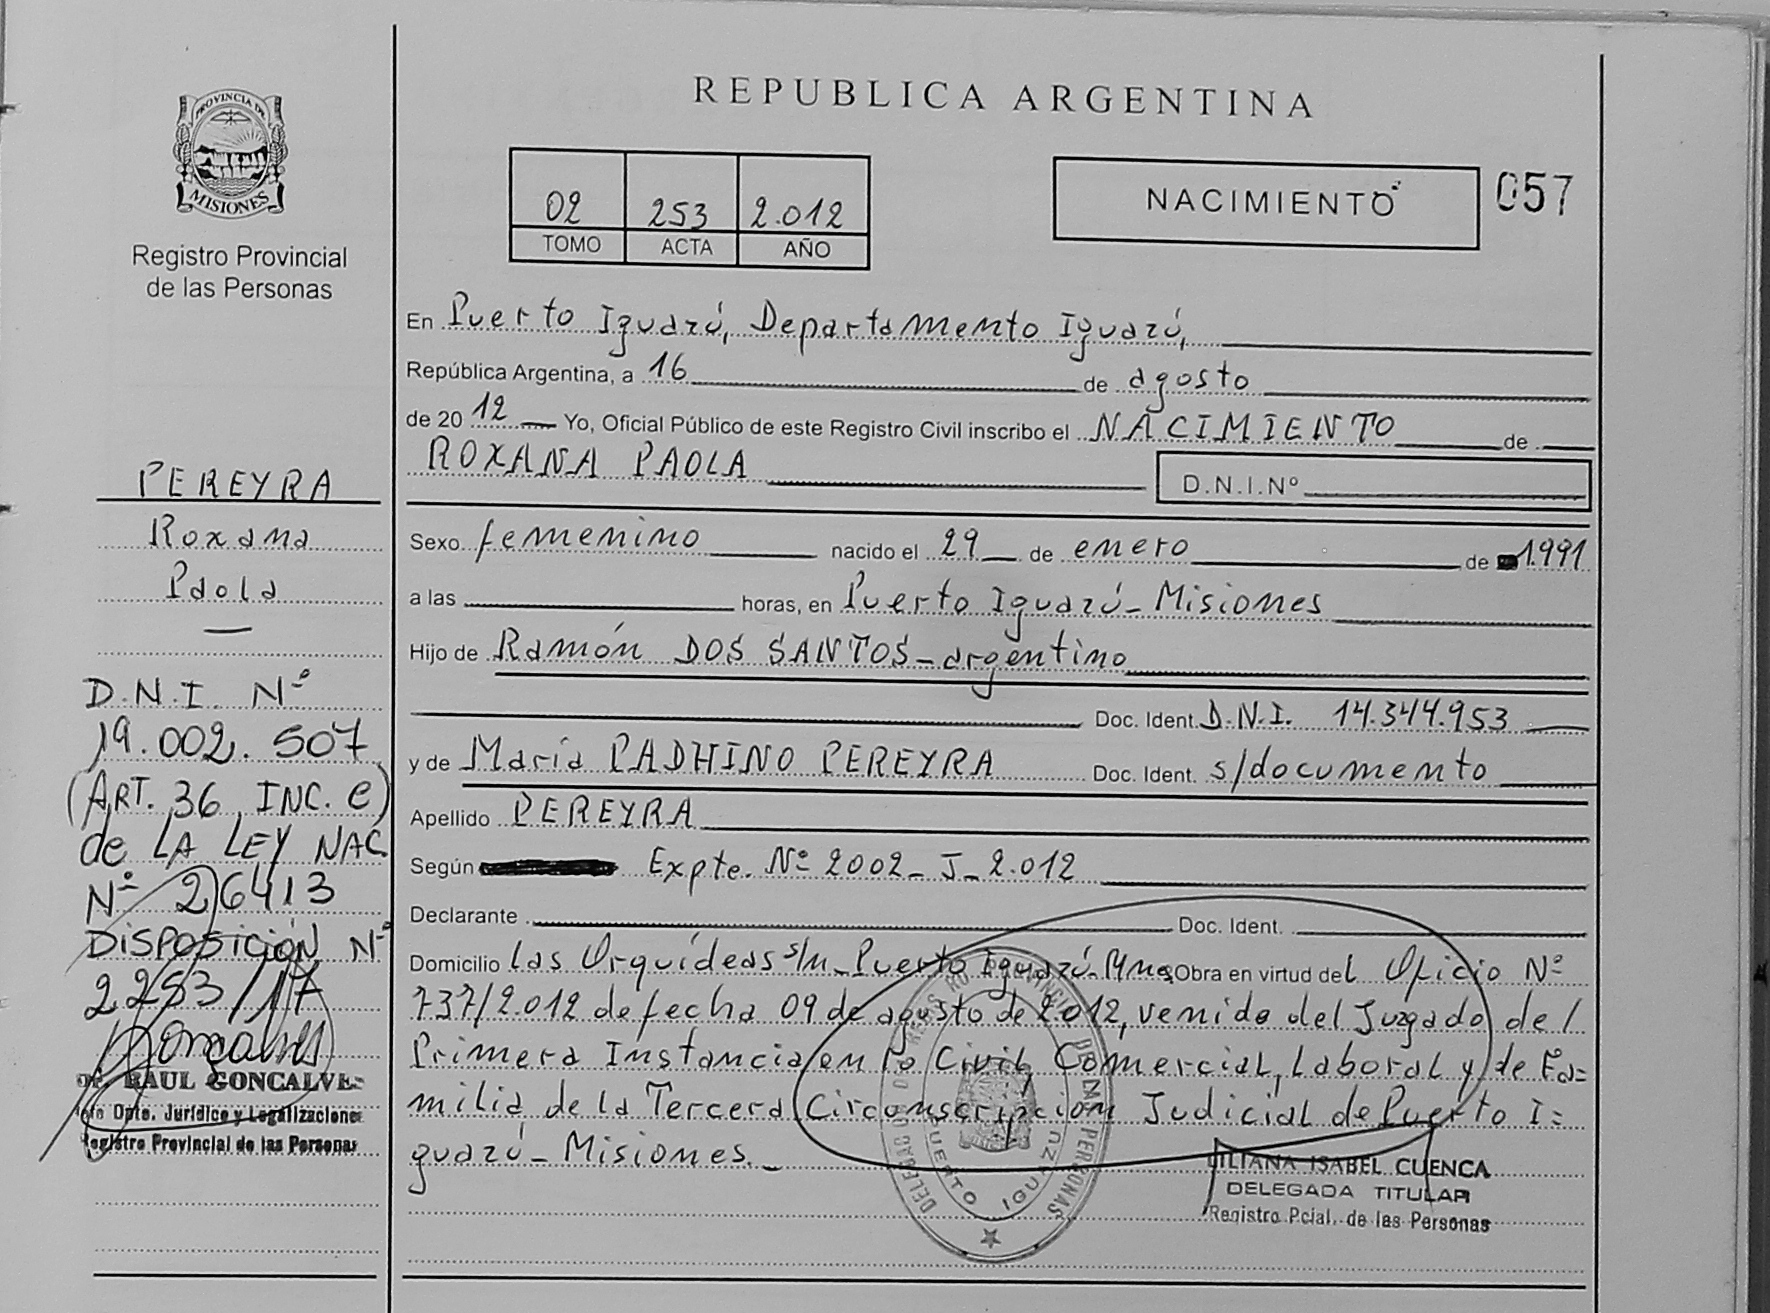 PROVINCIA DE
MISIONES
Registro Provincial
de las Personas
PEREYRA
Roxana
Paola
D.N.I. Nº
19.002.507
(ART. 36 INC. e)
de LA LEY NAC.
Nº 26413
DISPOSICIÓN Nº
2283/17
RAUL GONCALVES
Dpto. Jurídico y Legalizaciones
Registro Provincial de las Personas
REPUBLICA ARGENTINA
02 253 2.012
TOMO ACTA AÑO
NACIMIENTO 057
En Puerto Iguazú, Departamento Iguazú,
República Argentina, a 16 de agosto
de 20 12 Yo, Oficial Público de este Registro Civil inscribo el NACIMIENTO de
ROXANA PAOLA D.N.I.Nº
Sexo femenino nacido el 29 de enero de 1.991
a las horas, en Puerto Iguazú - Misiones
Hijo de Ramón DOS SANTOS - argentino
Doc. Ident. D.N.I. 14.344.953
y de María PADHINO PEREYRA Doc. Ident. s/documento
Apellido PEREYRA
Según Expte. Nº 2002 - J - 2.012
Declarante Doc. Ident.
Domicilio Las Orquídeas s/n - Puerto Iguazú - Mnes Obra en virtud del Oficio Nº
737/2.012 de fecha 09 de agosto de 2.012, venido del Juzgado de
Primera Instancia en lo Civil, Comercial, Laboral y de Fa=
milia de la Tercera Circunscripción Judicial de Puerto I=
guazú - Misiones.
PUERTO IGUAZU
LILIANA ISABEL CUENCA
DELEGADA TITULAR
Registro Pcial. de las Personas